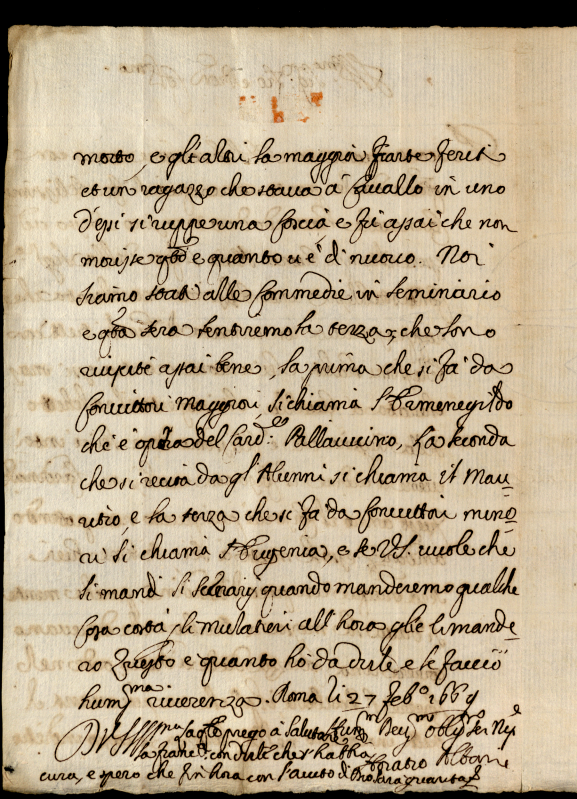 morto, e gl'altri la maggior parte feriti
et un ragazzo che staua à Cauallo in uno
d'essi si ruppe una coscia e fù assai che non
morisse q.to è quanto ui è di nuouo. Noi
siamo stati alle Commedie in seminario
e q.ta sera sentiremo la terza, che sono
riuscite assai bene, la prima che si fà da
Conuittori Maggiori, si chiama S. Ermenegildo
che è opera del Card.le Pallauicino, La seconda
che si recita da gl'Alunni si chiama il Mau-
ritio, e la terza che si fà da Conuittori mino-
ri si chiama S. Eugenia, e se V.S. uuole che
si mandi li scenarij quando manderemo qualche
cosa costà p li mulatieri all'hora glie li mande-
rò Questo è quanto hò da dirle e le faccio
hum.ma riuerenza. Roma li 27 feb.o 166
Di V.S. prego à salutare hum.mo Deu.mo obl.mo ser. Nip.e
con dirle che s'habbia Oratio Albani
cura, e spero che à hora con l'aiuto di Dio sarà guarita